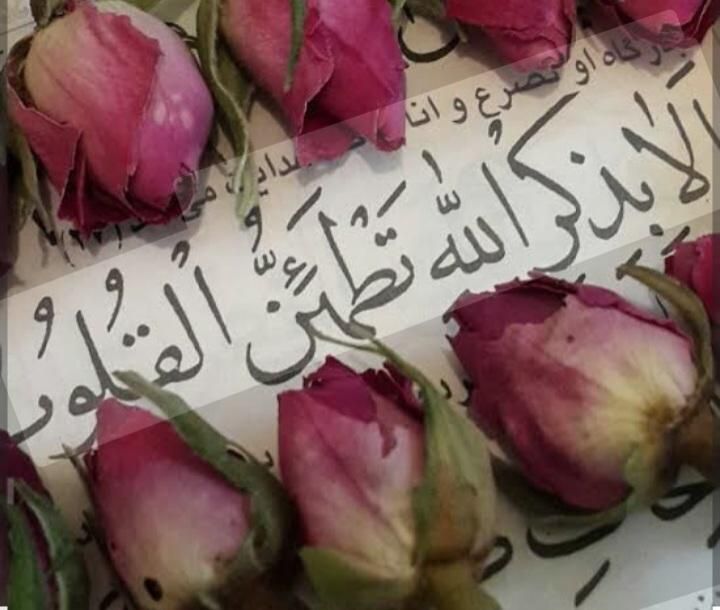 درگاه او تضرع و انا
هدایت می (۲۷)
أَلَا بِذِكْرِ اللَّهِ تَطْمَئِنُّ الْقُلُوبُ